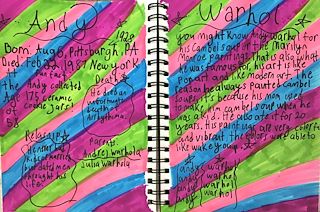 Andy
1928
Born: Aug 6, Pittsburgh, PA
Died: Feb 22, 1987 New york
Fun fact
Andy collected
175 ceramic
cookie jars!
Age
58
Death
He died
unfortunately
Relations
his life.
Parents
Andrej warhola,
Julia warhola
Warhol
you might know Andy warhol for
his Cambel soup or the Marilyn
Monroe paintings. That is also what
he was famous for, his art is like
POP art and like modern art. The
reason he always painted cambel
soup, it's because his mom used
to make him cambel soup when he
was a kid. He also ate it for 20
years. His paintings are very colorful
and vibrant. The colors were able to
like wake you up.
andy warhol
andy warhol
andy warhol
andy warhol